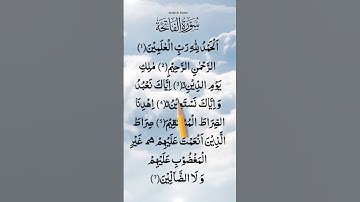 سُوْرَةُ الْفَاتِحَةِ
اَلْحَمْدُ لِلّٰهِ رَبِّ الْعٰلَمِيْنَ﴿١﴾
الرَّحْمٰنِ الرَّحِيْمِ﴿٢﴾ مٰلِكِ
يَوْمِ الدِّيْنِ﴿٣﴾ اِيَّاكَ نَعْبُدُ
وَ اِيَّاكَ نَسْتَعِيْنُ﴿٤﴾ اِهْدِنَا
الصِّرَاطَ الْمُسْتَقِيْمَ﴿٥﴾ صِرَاطَ
الَّذِيْنَ اَنْعَمْتَ عَلَيْهِمْ غَيْرِ
الْمَغْضُوْبِ عَلَيْهِمْ
وَ لَا الضَّآلِّيْنَ﴿٧﴾